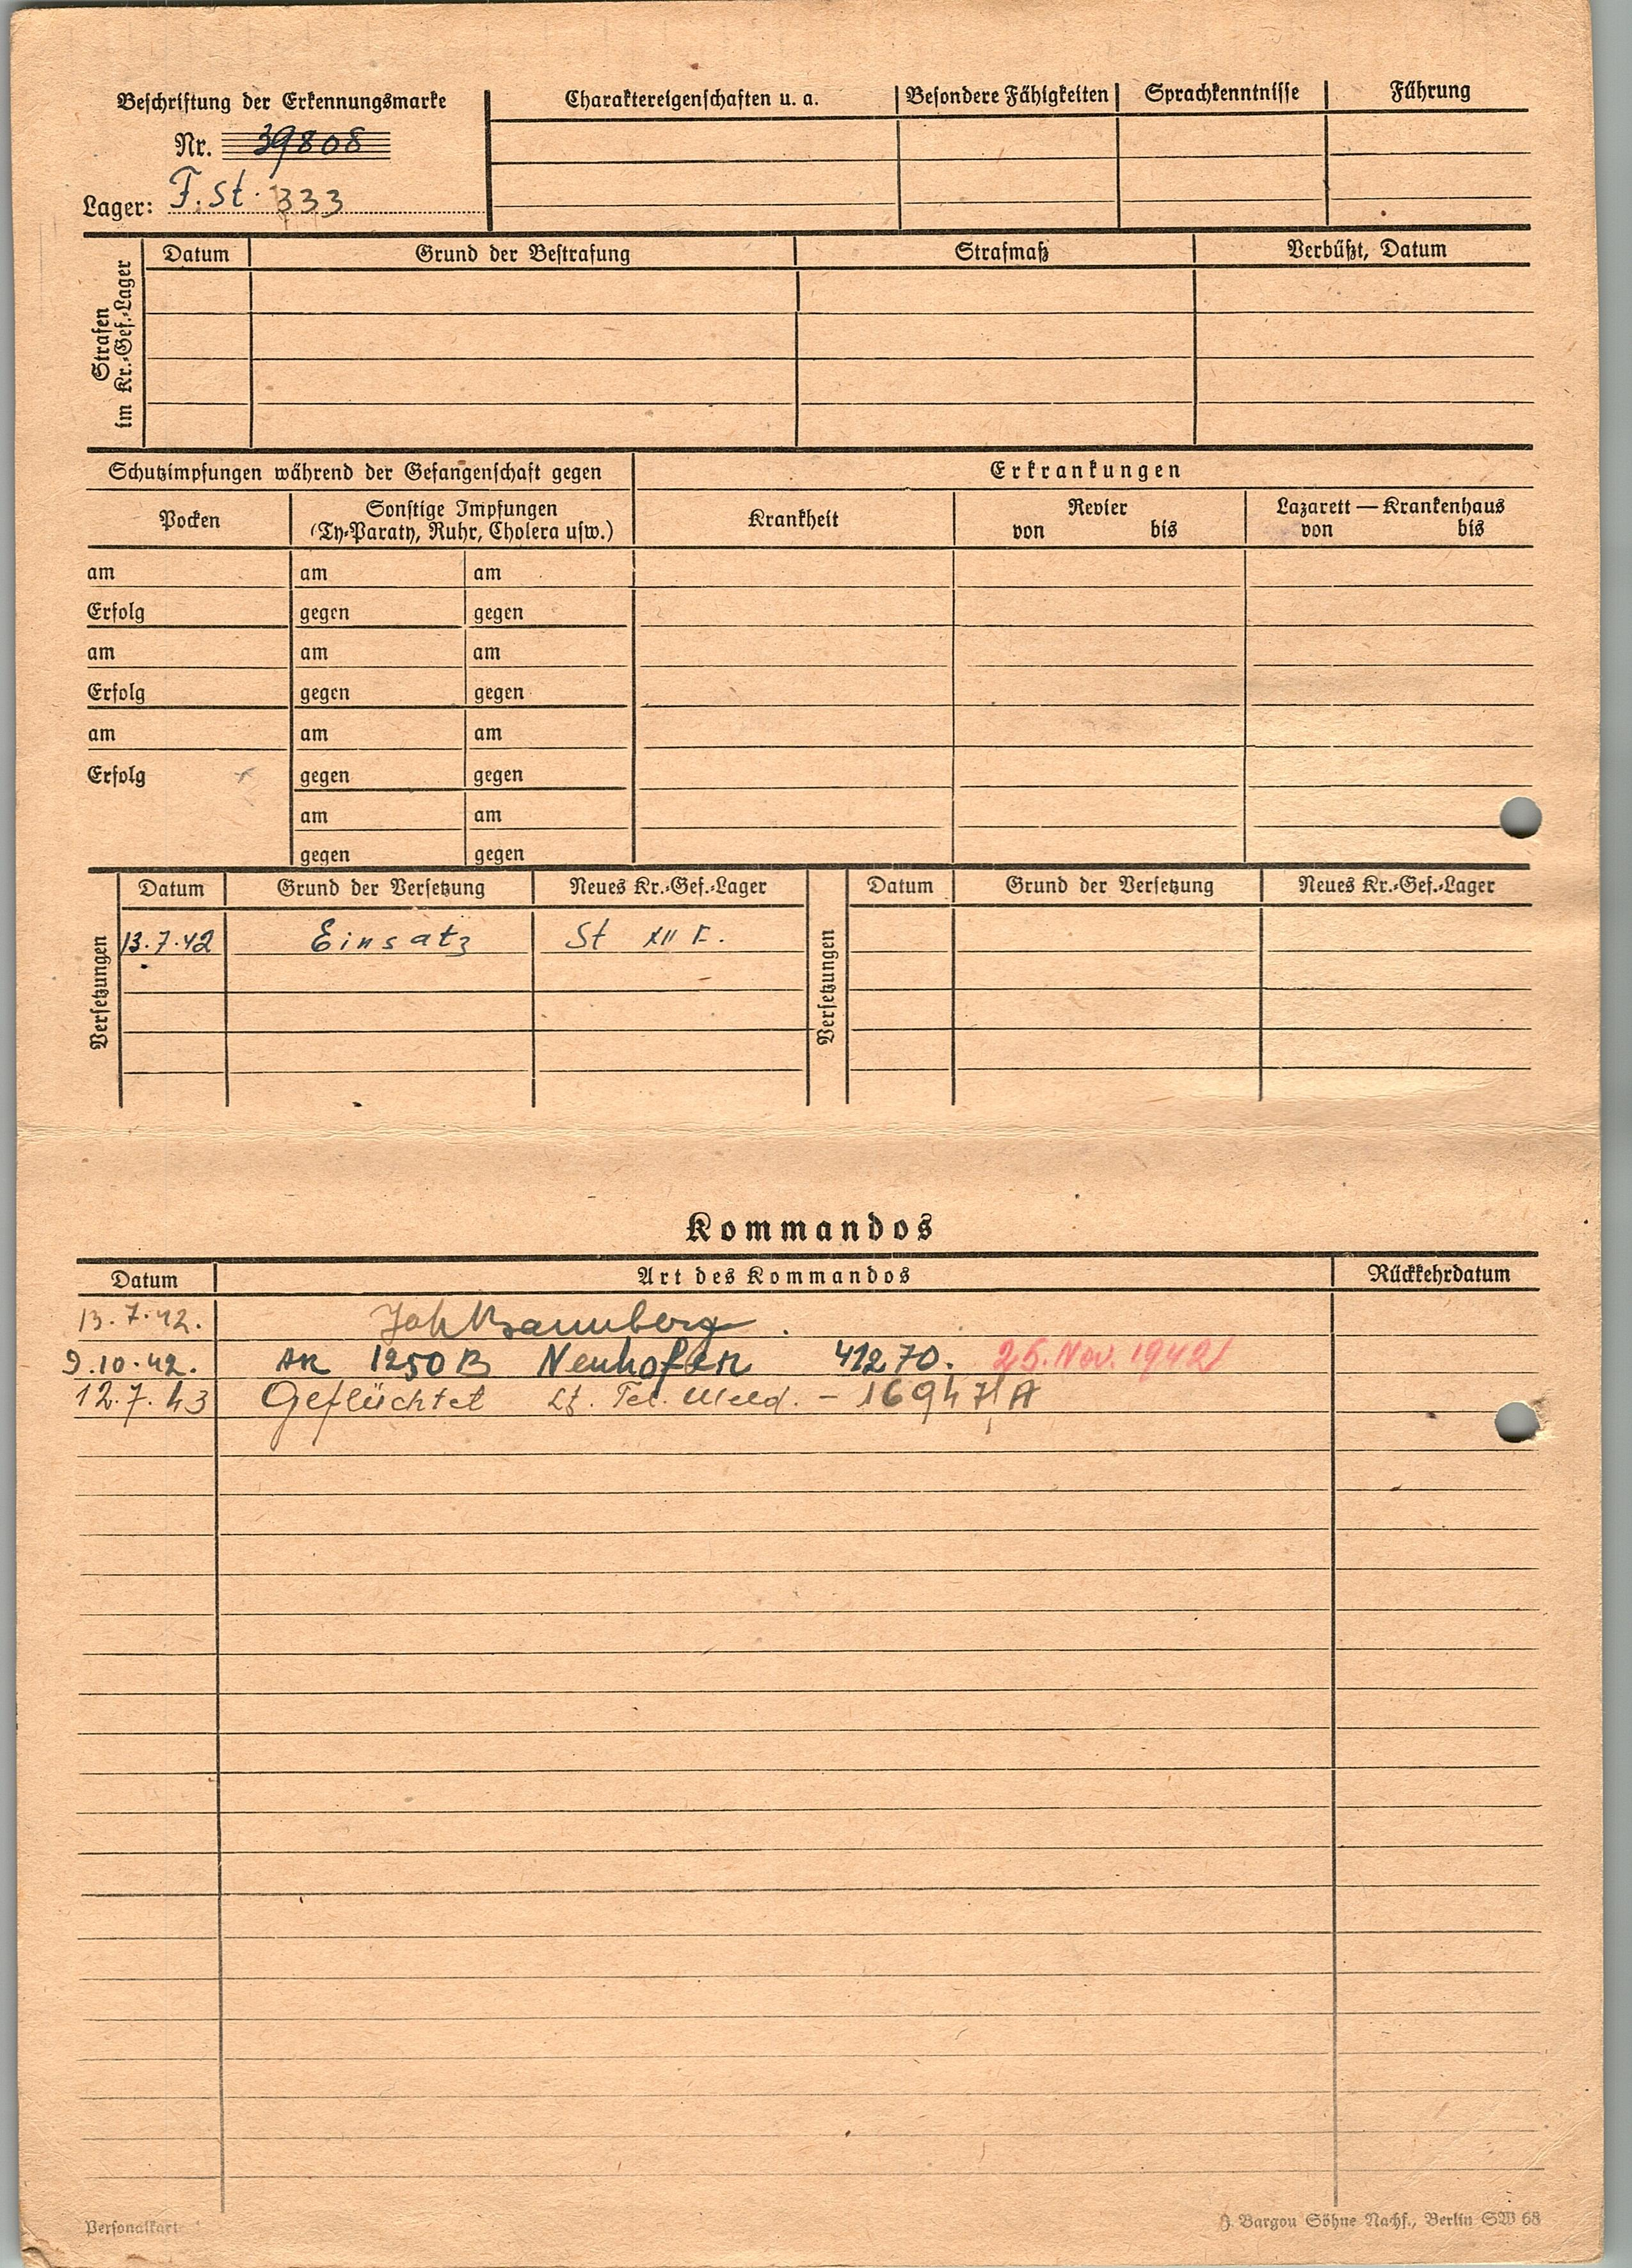 Beschriftung der Erkennungsmarke
Nr. 39808
Lager: F. St. 333
Charaktereigenschaften u. a. Besondere Fähigkeiten Sprachkenntnisse Führung
Strafen im Kr.-Gef.-Lager
Datum Grund der Bestrafung Strafmaß Verbüßt, Datum
Schutzimpfungen während der Gefangenschaft gegen
Pocken Sonstige Impfungen
(Ty-Paraty, Ruhr, Cholera usw.)
Erkrankungen
Krankheit Revier Lazarett — Krankenhaus
von bis von bis
am am am
Erfolg gegen gegen
am am am
Erfolg gegen gegen
am am am
Erfolg gegen gegen
am am
gegen gegen
Versetzungen
Datum Grund der Versetzung Neues Kr.-Gef.-Lager
13.7.42 Einsatz St XII F.
Versetzungen
Datum Grund der Versetzung Neues Kr.-Gef.-Lager
Kommandos
Datum Art des Kommandos Rückkehrdatum
13.7.42.
9.10.42. AK 1250 B Neuhofen 41270. 25. Nov. 1942
12.7.43 Geflüchtet Lt. Tel. Meld. - 16947 A
Personalkart
J. Bargou Söhne Nachf., Berlin SW 68